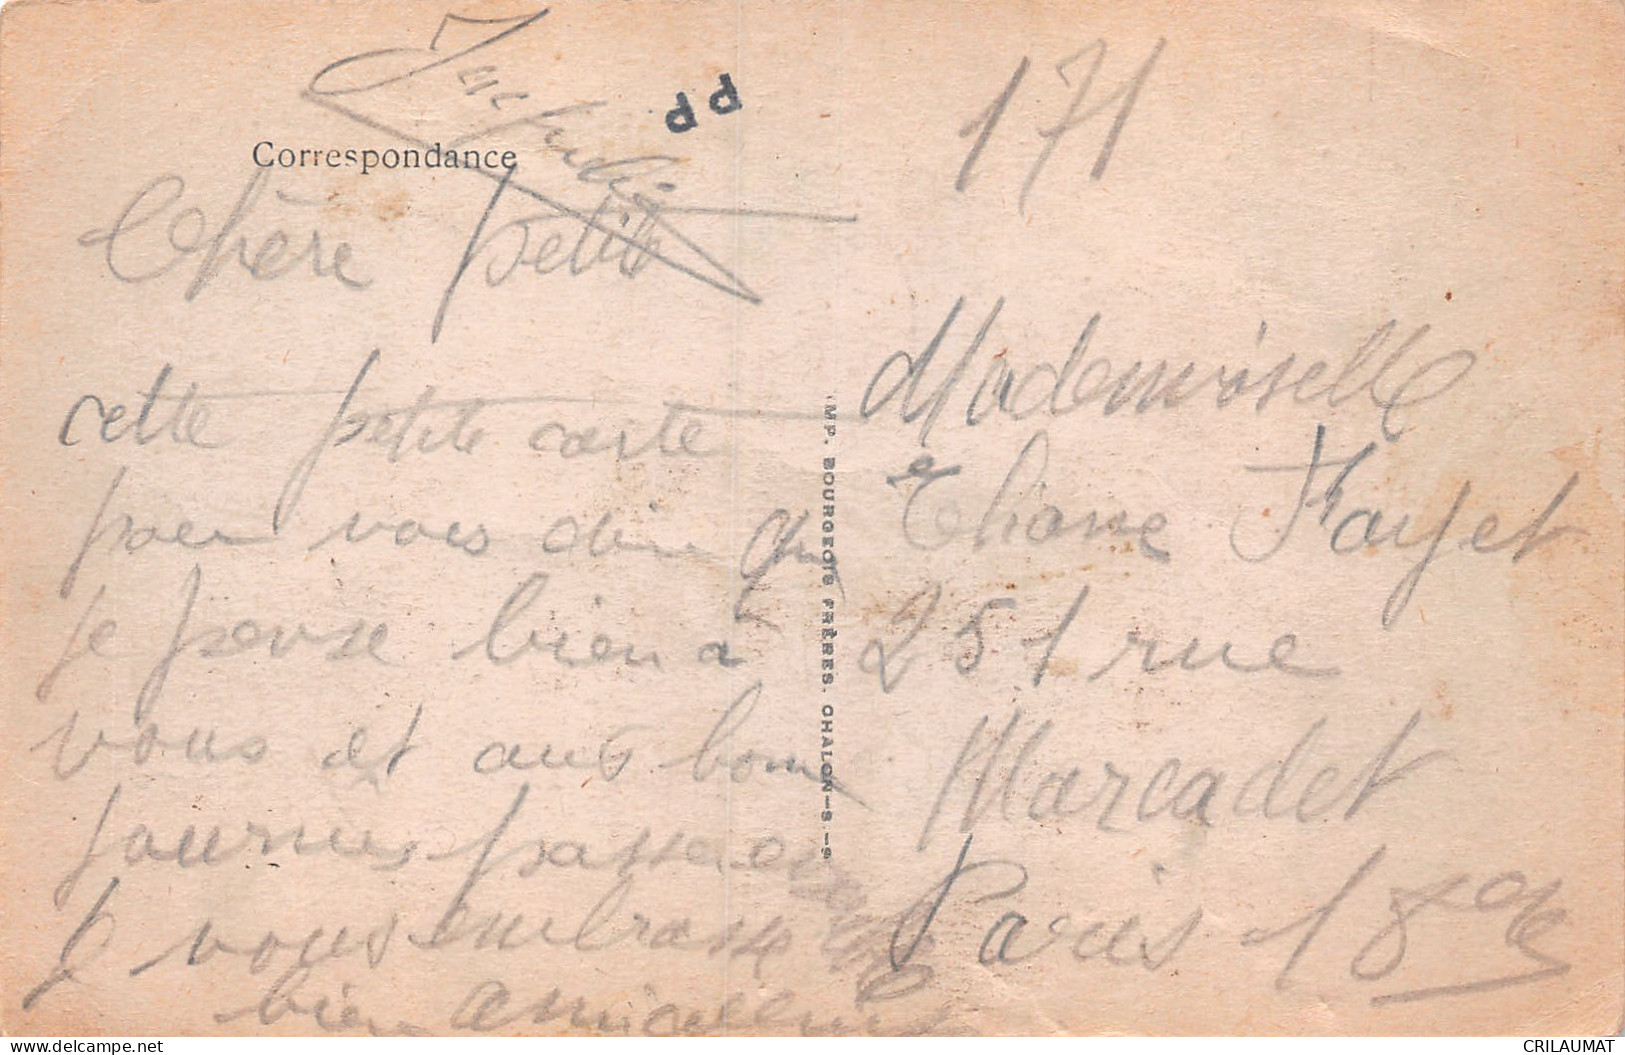 171
PP
Correspondance
Chère petite
cette petite carte
pour vous dire que
je pense bien a
vous et aux bonnes
journes passer
Je vous embrasse
bien amicalement
IMP. BOURGEOIS FRÈRES. CHALON-S.-S.
Mademoiselle
Eliane Fayet
251 rue
Marcadet
Paris 18eme
delcampe.net
CRILAUMAT